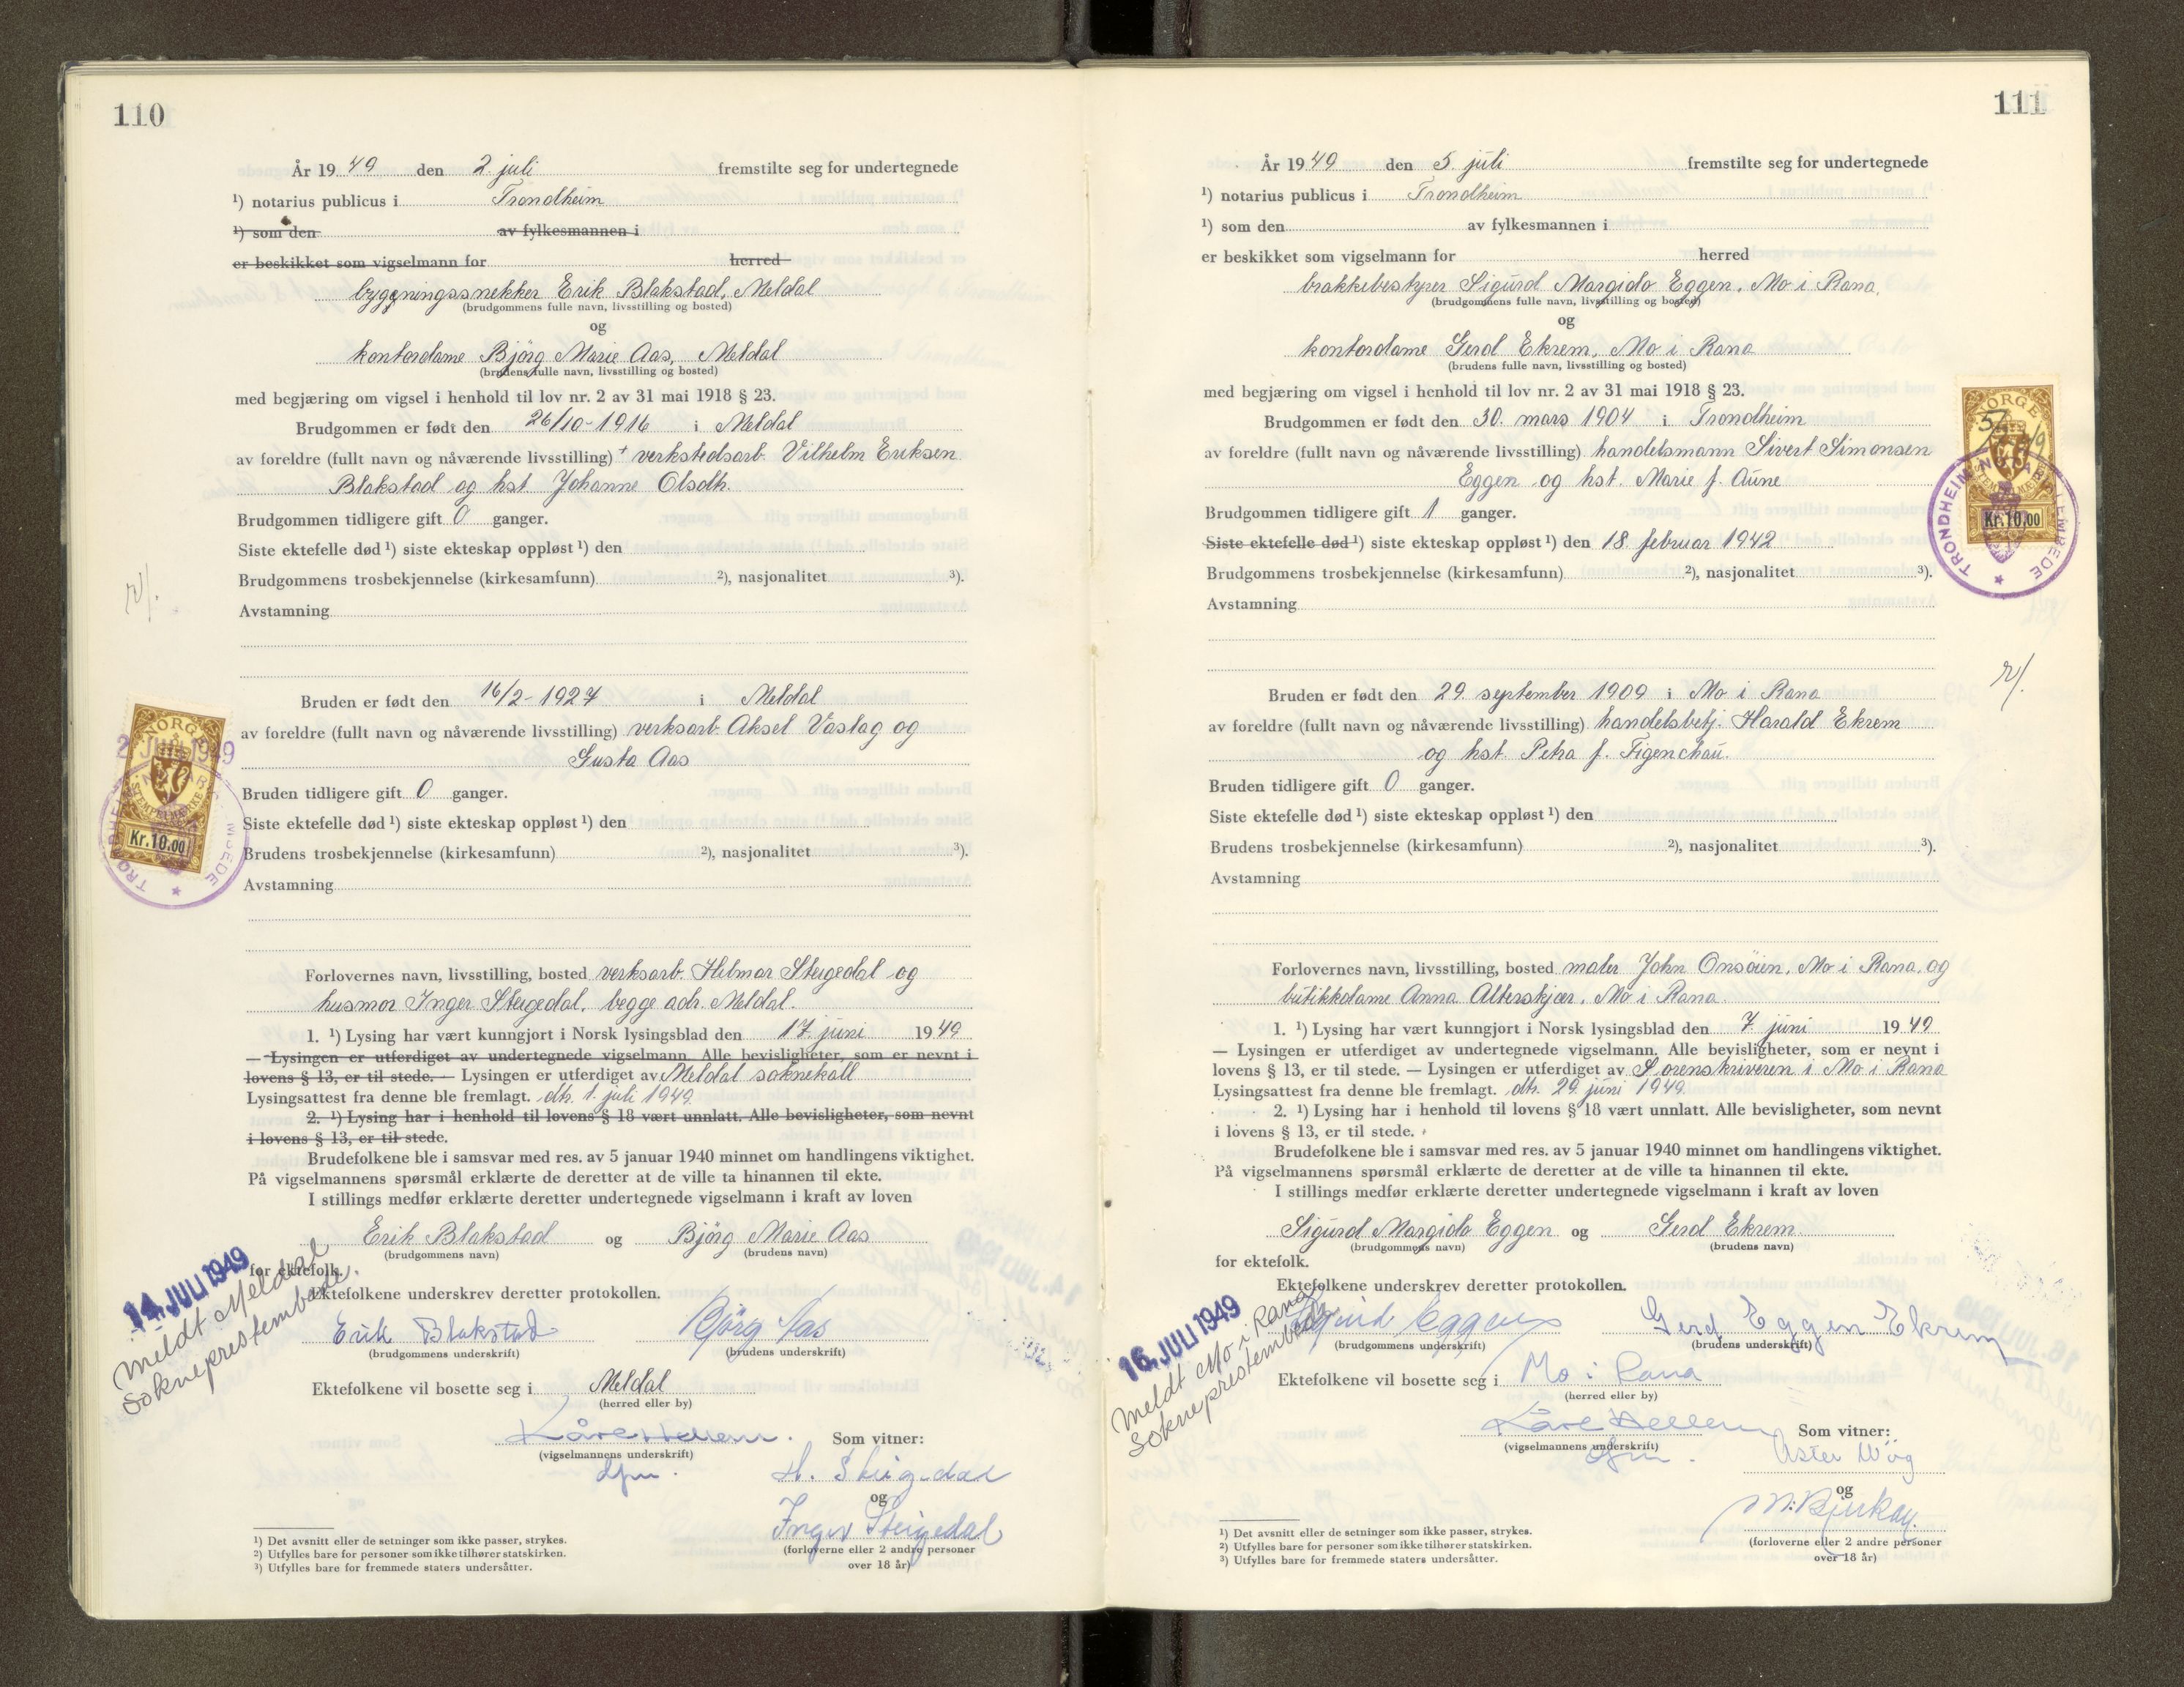 110
År 1949 den 2. juli fremstilte seg for undertegnede
¹) notarius publicus i Trondheim
¹) som den av fylkesmannen i
er beskikket som vigselmann for herred
bygningssnekker Erik Blakstad, Meldal
(brudgommens fulle navn, livsstilling og bosted)
og
kontordame Bjørg Marie Aas, Meldal
(brudens fulle navn, livsstilling og bosted)
med begjæring om vigsel i henhold til lov nr. 2 av 31 mai 1918 § 23.
Brudgommen er født den 26/10-1916 i Meldal
av foreldre (fullt navn og nåværende livsstilling) + verkstedsarb. Vilhelm Eriksen
Blakstad og hst. Johanne Olsdh.
Brudgommen tidligere gift 0 ganger.
Siste ektefelle død ¹) siste ekteskap oppløst ¹) den
Brudgommens trosbekjennelse (kirkesamfunn) ²), nasjonalitet ³).
Avstamning
Bruden er født den 16/2-1927 i Meldal
av foreldre (fullt navn og nåværende livsstilling) verksarb. Aksel Vaslag og
Gusta Aas
Bruden tidligere gift 0 ganger.
Siste ektefelle død ¹) siste ekteskap oppløst ¹) den
Brudens trosbekjennelse (kirkesamfunn) ²), nasjonalitet ³).
Avstamning
NORGE
2 JULI 1949
STEMPELMERKE
Kr. 10.00
Forlovernes navn, livsstilling, bosted verksarb. Hilmar Steigedal og
husmor Inger Steigedal, begge adr. Meldal.
1. ¹) Lysing har vært kunngjort i Norsk lysingsblad den 17. juni 1949
— Lysingen er utferdiget av undertegnede vigselmann. Alle bevisligheter, som er nevnt i
lovens § 13, er til stede. — Lysingen er utferdiget av Meldal soknekall
Lysingsattest fra denne ble fremlagt. dh. 1. juli 1949.
2. ¹) Lysing har i henhold til lovens § 18 vært unnlatt. Alle bevisligheter, som nevnt
i lovens § 13, er til stede.
Brudefolkene ble i samsvar med res. av 5 januar 1940 minnet om handlingens viktighet.
På vigselmannens spørsmål erklærte de deretter at de ville ta hinannen til ekte.
I stillings medfør erklærte deretter undertegnede vigselmann i kraft av loven
Erik Blakstad og Bjørg Marie Aas
(brudgommens navn) (brudens navn)
for ektefolk.
Ektefolkene underskrev deretter protokollen.
14. JULI 1949
Meldt Meldal
Sokneprestembede.
Erik Blakstad Bjørg Aas
(brudgommens underskrift) (brudens underskrift)
Ektefolkene vil bosette seg i Meldal
(herred eller by)
Kåre Hellem. Som vitner:
(vigselmannens underskrift)
H. Steigedal
og
Inger Steigedal
(forloverne eller 2 andre personer
over 18 år)
¹) Det avsnitt eller de setninger som ikke passer, strykes.
²) Utfylles bare for personer som ikke tilhører statskirken.
³) Utfylles bare for fremmede staters undersåtter.
111
År 1949 den 5. juli fremstilte seg for undertegnede
¹) notarius publicus i Trondheim
¹) som den av fylkesmannen i
er beskikket som vigselmann for herred
brakkebestyrer Sigurd Margido Eggen, Mo i Rana.
(brudgommens fulle navn, livsstilling og bosted)
og
kontordame Gerd Ekrem, Mo i Rana
(brudens fulle navn, livsstilling og bosted)
med begjæring om vigsel i henhold til lov nr. 2 av 31 mai 1918 § 23.
Brudgommen er født den 30. mars 1904 i Trondheim
av foreldre (fullt navn og nåværende livsstilling) handelsmann Sivert Simonsen
Eggen og hst. Marie f. Aune
Brudgommen tidligere gift 1 ganger.
Siste ektefelle død ¹) siste ekteskap oppløst ¹) den 18. februar 1942
Brudgommens trosbekjennelse (kirkesamfunn) ²), nasjonalitet ³).
Avstamning
NORGE
Kr. 10.00
Bruden er født den 29. september 1909 i Mo i Rana
av foreldre (fullt navn og nåværende livsstilling) handelsbetj. Harald Ekrem
og hst. Petra f. Figenchau.
Bruden tidligere gift 0 ganger.
Siste ektefelle død ¹) siste ekteskap oppløst ¹) den
Brudens trosbekjennelse (kirkesamfunn) ²), nasjonalitet ³).
Avstamning
Forlovernes navn, livsstilling, bosted maler John Onsøien, Mo i Rana, og
butikkdame Anna Alterskjær, Mo i Rana.
1. ¹) Lysing har vært kunngjort i Norsk lysingsblad den 7. juni 1949
— Lysingen er utferdiget av undertegnede vigselmann. Alle bevisligheter, som er nevnt i
lovens § 13, er til stede. — Lysingen er utferdiget av Sorenskriveren i Mo i Rana
Lysingsattest fra denne ble fremlagt. dh. 29. juni 1949.
2. ¹) Lysing har i henhold til lovens § 18 vært unnlatt. Alle bevisligheter, som nevnt
i lovens § 13, er til stede.
Brudefolkene ble i samsvar med res. av 5 januar 1940 minnet om handlingens viktighet.
På vigselmannens spørsmål erklærte de deretter at de ville ta hinannen til ekte.
I stillings medfør erklærte deretter undertegnede vigselmann i kraft av loven
Sigurd Margido Eggen og Gerd Ekrem.
(brudgommens navn) (brudens navn)
for ektefolk.
Ektefolkene underskrev deretter protokollen.
16. JULI 1949
Meldt Mo i Rana
Sokneprestembede.
Sigurd Eggen Gerd Eggen Ekrem
(brudgommens underskrift) (brudens underskrift)
Ektefolkene vil bosette seg i Mo i Rana
(herred eller by)
Kåre Hellem Som vitner:
(vigselmannens underskrift)
og
(forloverne eller 2 andre personer
over 18 år)
¹) Det avsnitt eller de setninger som ikke passer, strykes.
²) Utfylles bare for personer som ikke tilhører statskirken.
³) Utfylles bare for fremmede staters undersåtter.